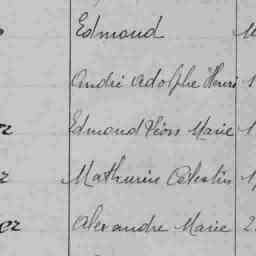 Edmond
André Adolphe Henri 1
Edmond Léon Marie 1
Mathurin Célestin 1
Alexandre Marie 2